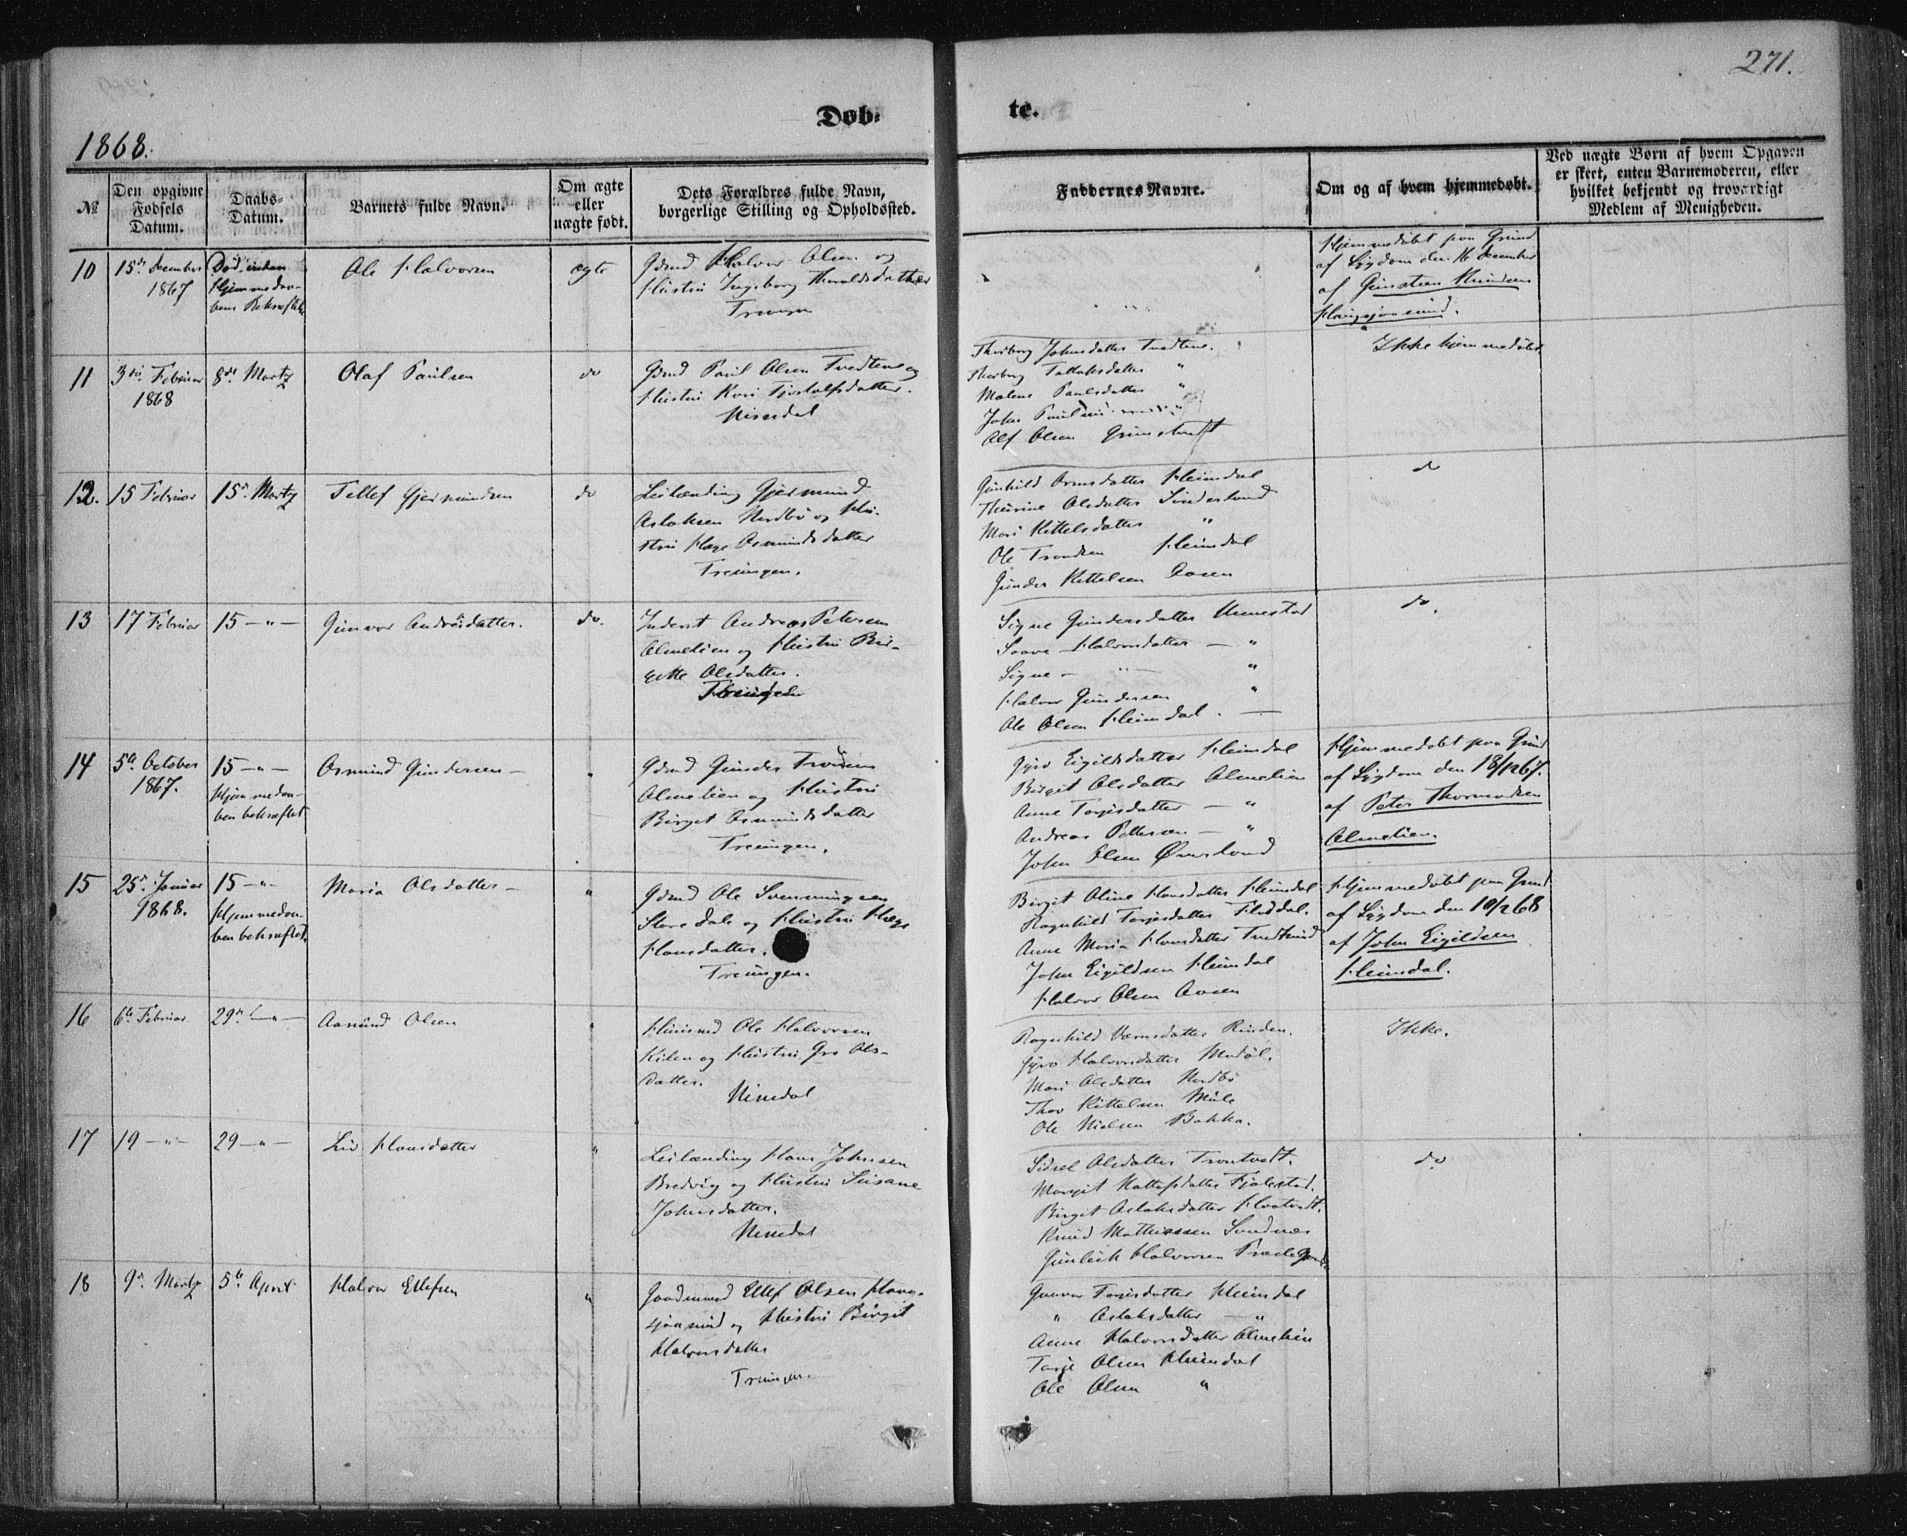 271.
Døb-
te.
1868.
№
Den opgivne Fødsels Datum.
Daabs-Datum.
Barnets fulde Navn.
Om ægte eller uægte født.
Dets Forældres fulde Navn, borgerlige Stilling og Opholdssted.
Faddernes Navne.
Om og af hvem hjemmedøbt.
Ved uægte Børn af hvem Opgaven er skeet, enten Barnemoderen, eller hvilket bekjendt og troværdigt Medlem af Menigheden.
10
15de December
1867
Død inden
Hjemmedaa-
bens Bekræftels
Ole Halvorsen
ægte
Gdmd Halvor Olsen og
Hustru Ingeborg Tharaldsdatter
Hjemmedøbt paa Grund
af Sygdom den 16 December
af Gunsteen Knudsen
Haugsjaasund.
11
3die Februar
1868
8de Martz
Olaf Paulsen
do
Gdmd Paul Olsen Tvedten og
Hustru Kari Tjostolfsdatter.
Nissedal
Thorborg Johnsdatter Tvedtene.
Thorborg Tallaksdatter "
Malene Paulsdatter "
John Paulsen "
Alf Olsen Grimstvedt
Ikke hjemmedøbt
12.
15 Februar
15de Martz
Tellef Gjermundsen
do
Leilænding Gjermund
Aslaksen Nordbø og Hu-
stru Hæge Asmundsdatter
Treungen.
Gunhild Ormsdatter Heimdal
Thurine Olsdatter Sønderland
Mari Kittelsdatter "
Ole Trondsen Heimdal
Gunder Kittelsen Aasen
do
13
17 Februar
15 — " —
Gunvor Andreasdatter.
do.
Inderst Andreas Petersen
Almelien og Hustru Bir-
gitte Olsdatter.
Treungen
Signe Gundersdatter Unnestad
Saave Halvorsdatter — "
Signe — " — "
Halvor Gundersen "
Ole Olsen Heimdal. —
do.
14
5te October
1867.
15 — " —
Hjemmedaa-
ben bekræftet
Asmund Gundersen —
"
Gdmd Gunder
Almelien og Hustru
Birget Asmundsdatter
Treungen.
Gyro Eigildsdatter Heimdal
Birgit Olsdatter Almelien
Anne Torjusdatter — "
Andreas Pettersen — "
John Olsen Ørnslund
Hjemmedøbt paa Grund
af Sygdom den 18/12 67.
af Peter Thormodsen
Almelien.
15
25de Januar
1868.
15 — " —
Hjemmedaa-
ben bekræftet.
Maria Olsdatter —
"
Gdmd Ole Svenningsen
Storedale og Hustru Hæge
Hansdatter.
Treungen.
Birgit Oline Hansdatter Heimdal
Ragnhild Torjusdatter Fluddal.
Anne Maria Hansdatter
John Eigildsen Heimdal
Halvor Olsen Aasen
Hjemmedøbt paa Grund
af Sygdom den 10/2 68
af John Eigildsen
Heimdal.
16
6te Februar
29de — " —
Aanund Olsen
"
Huusmd Ole Halvorsen
Kilen og Hustru Gro Ols-
datter.
Nissedal
Ragnhild Værnsdatter Rinden.
Gyro Halvorsdatter
Mari Olsdatter Nordbø
Thor Kittelsen Mule
Ole Nielsen Bakka.
Ikke.
17
19 — " —
29 — " —
Liv Hansdatter
"
Leilænding Hans Johnsen
Bredvig og Hustru Susane
Johnsdatter.
Nissedal
Sidsel Olsdatter Trontvedt.
Margit Kallefsdatter Fjalestad.
Birgit Aslaksdatter
Knud Mathiassen Sundnæs
Gunleik Halvorsen
do
18
9de Martz
5te April
Halvor Ellefsen
"
Gaardmand Ellef Olsen Haug-
sjaasund og Hustru Birgit
Halvorsdatter
Treungen.
Gunvor Torjusdatter Heimdal
" Aslaksdatter — "
Anne Halvorsdatter Almelien
Tarje Olsen Heimdal
Ole Olsen "